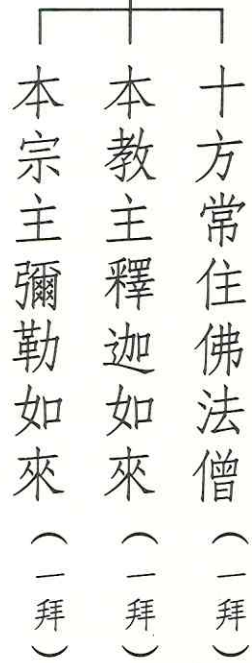 十方常住佛法僧（一拜）
本教主釋迦如來（一拜）
本宗主彌勒如來（一拜）